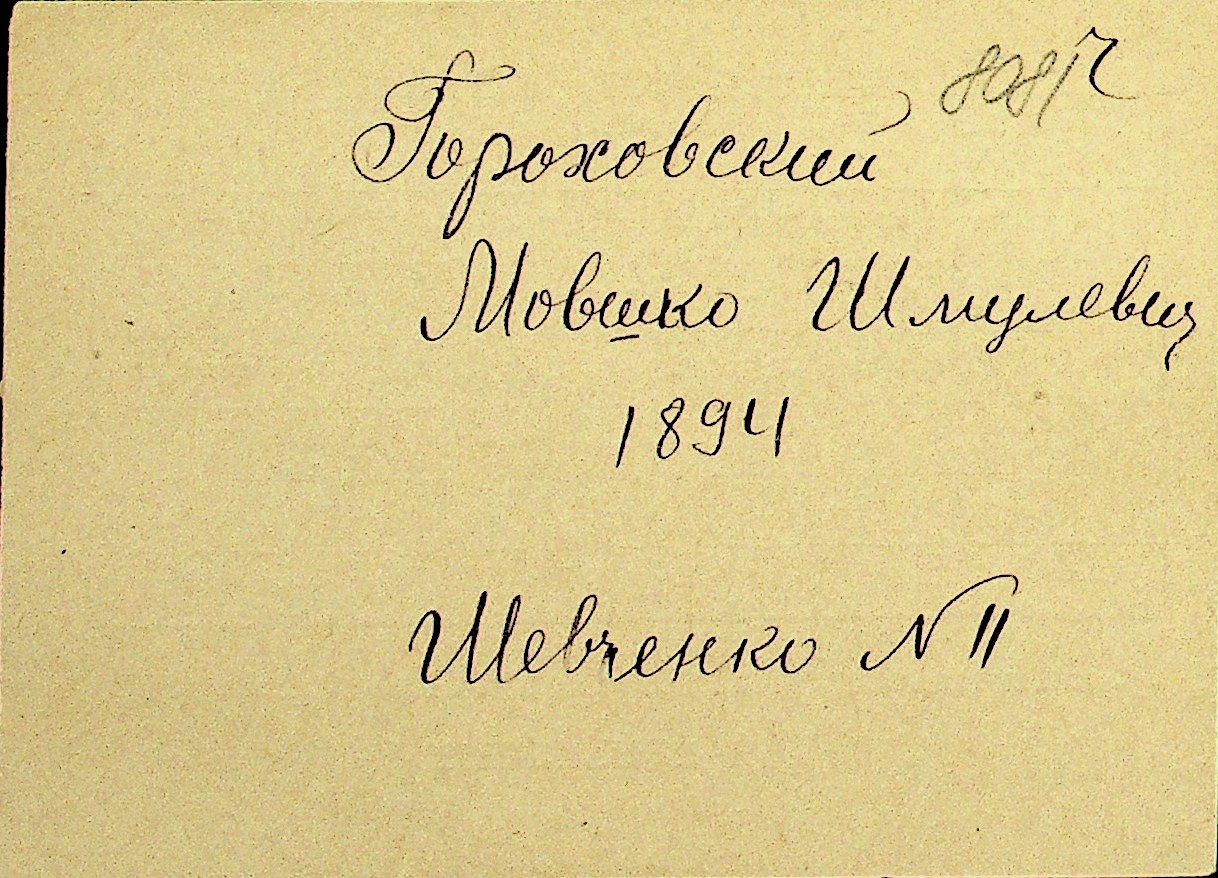 8081 г
Гороховский
Мовшко Шмулевич
1894
Шевченко № 11